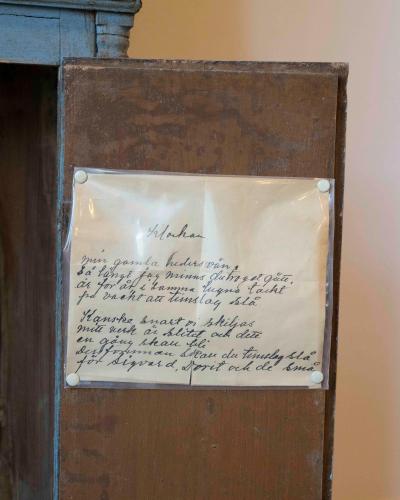 Klockan
min gamla hedersvän,
så långt jag minns du troget gått.
år för år i samma lugna takt
på vackt att timslag slå
Kanske snart vi skiljas
mitt verk är slitet och dete
en gång skall bli
Dessförinnan skall du timslag slå
för Sigvard, Dorit och de små